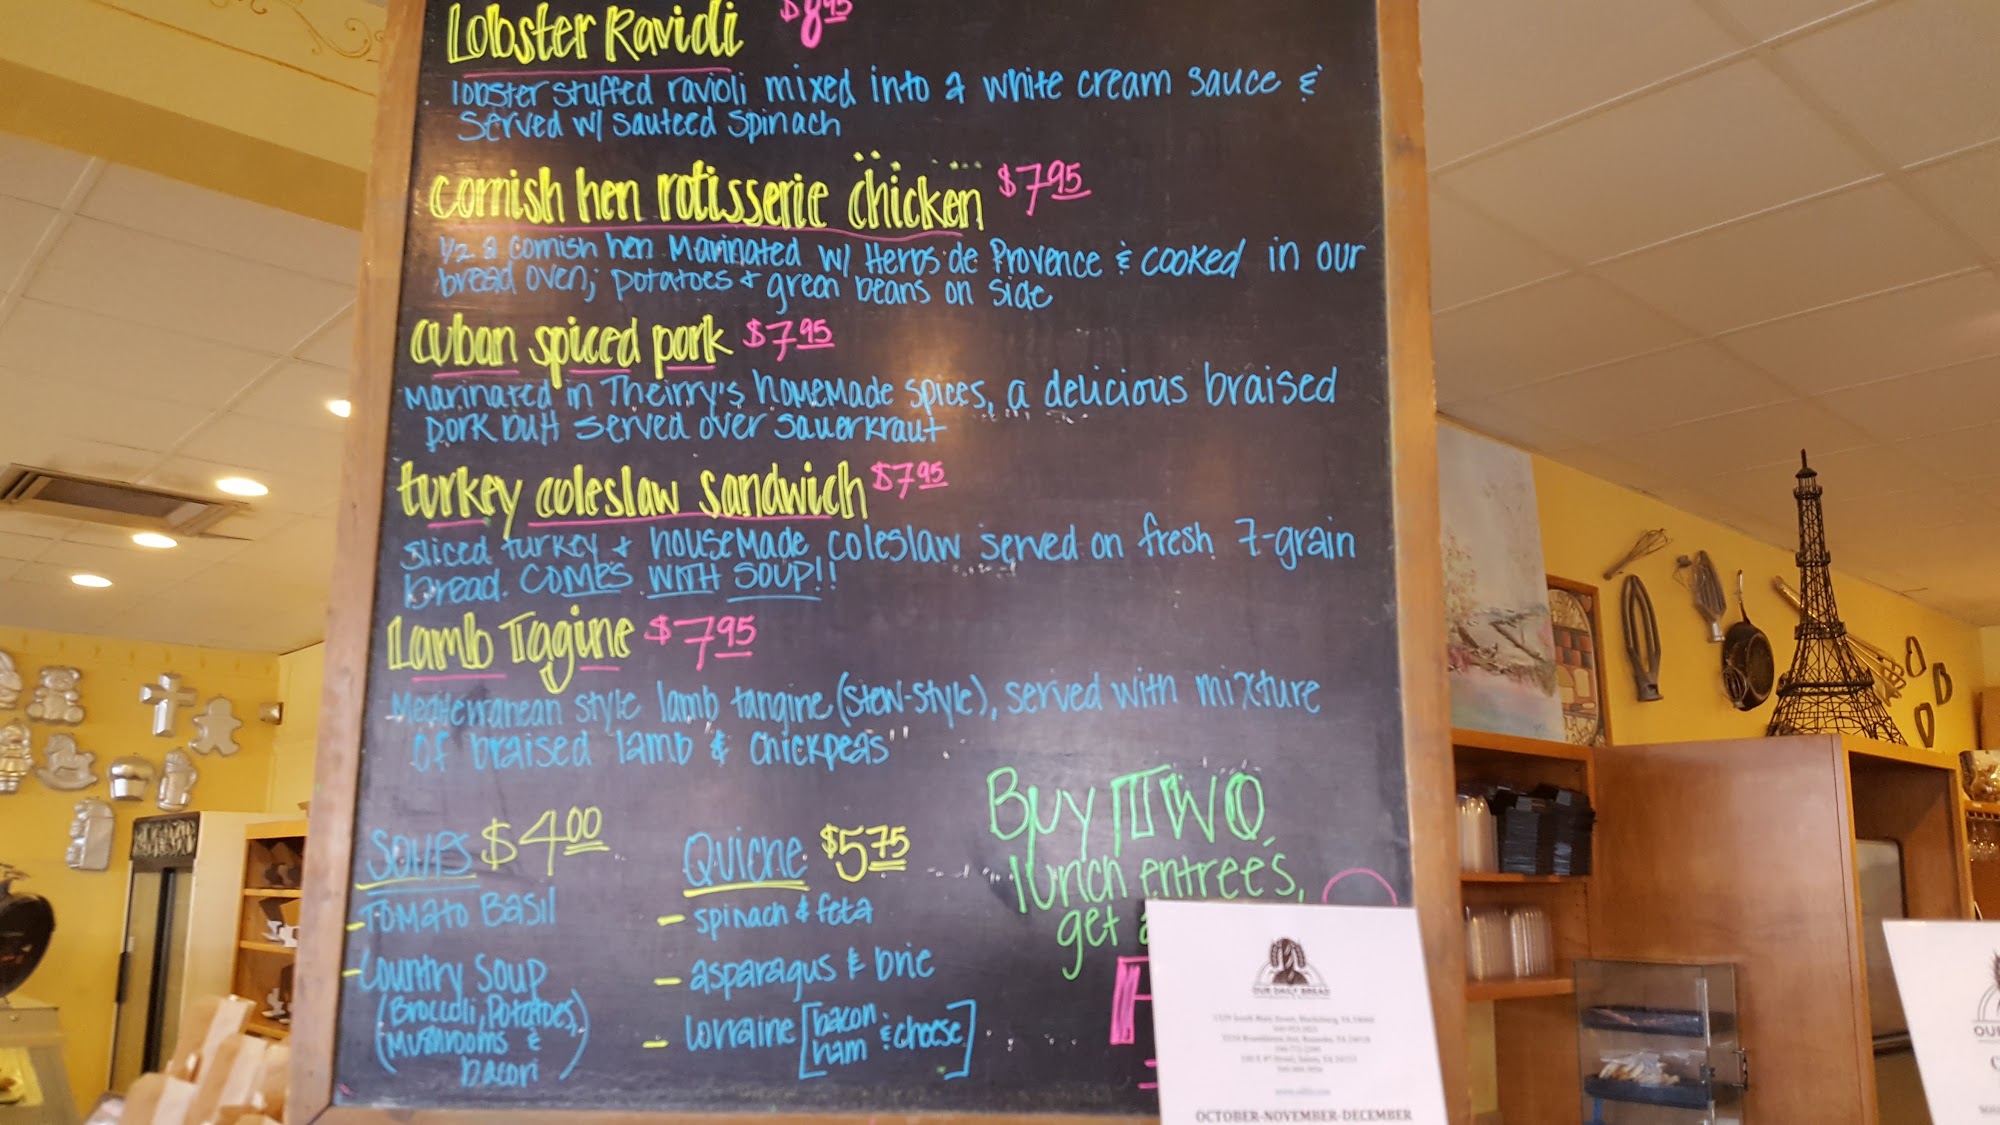 Lobster Ravioli $8.95
lobster stuffed ravioli mixed into a white cream sauce &
served w/ sauteed spinach
cornish hen rotisserie chicken $7.95
1/2 a cornish hen marinated w/ Herbs de Provence & cooked in our
bread oven; potatoes + green beans on side
cuban spiced pork $7.95
Marinated in Theirry's homemade spices, a delicious braised
pork butt served over sauerkraut
turkey coleslaw sandwich $7.95
sliced turkey + housemade coleslaw served on fresh 7-grain
bread. COMES WITH SOUP!!
Lamb Tagine $7.95
Mediterranean style lamb tangine (stew-style), served with mixture
of braised lamb & chickpeas
SOUPS $4.00
- Tomato Basil
- Country Soup
(Broccoli, Potatoes,
Mushrooms &
bacon)
Quiche $5.75
- spinach & feta
- asparagus & brie
- lorraine [bacon & cheese]
ham
Buy TWO
lunch entreés,
get
OUR DAILY BREAD
OCTOBER-NOVEMBER-DECEMBER